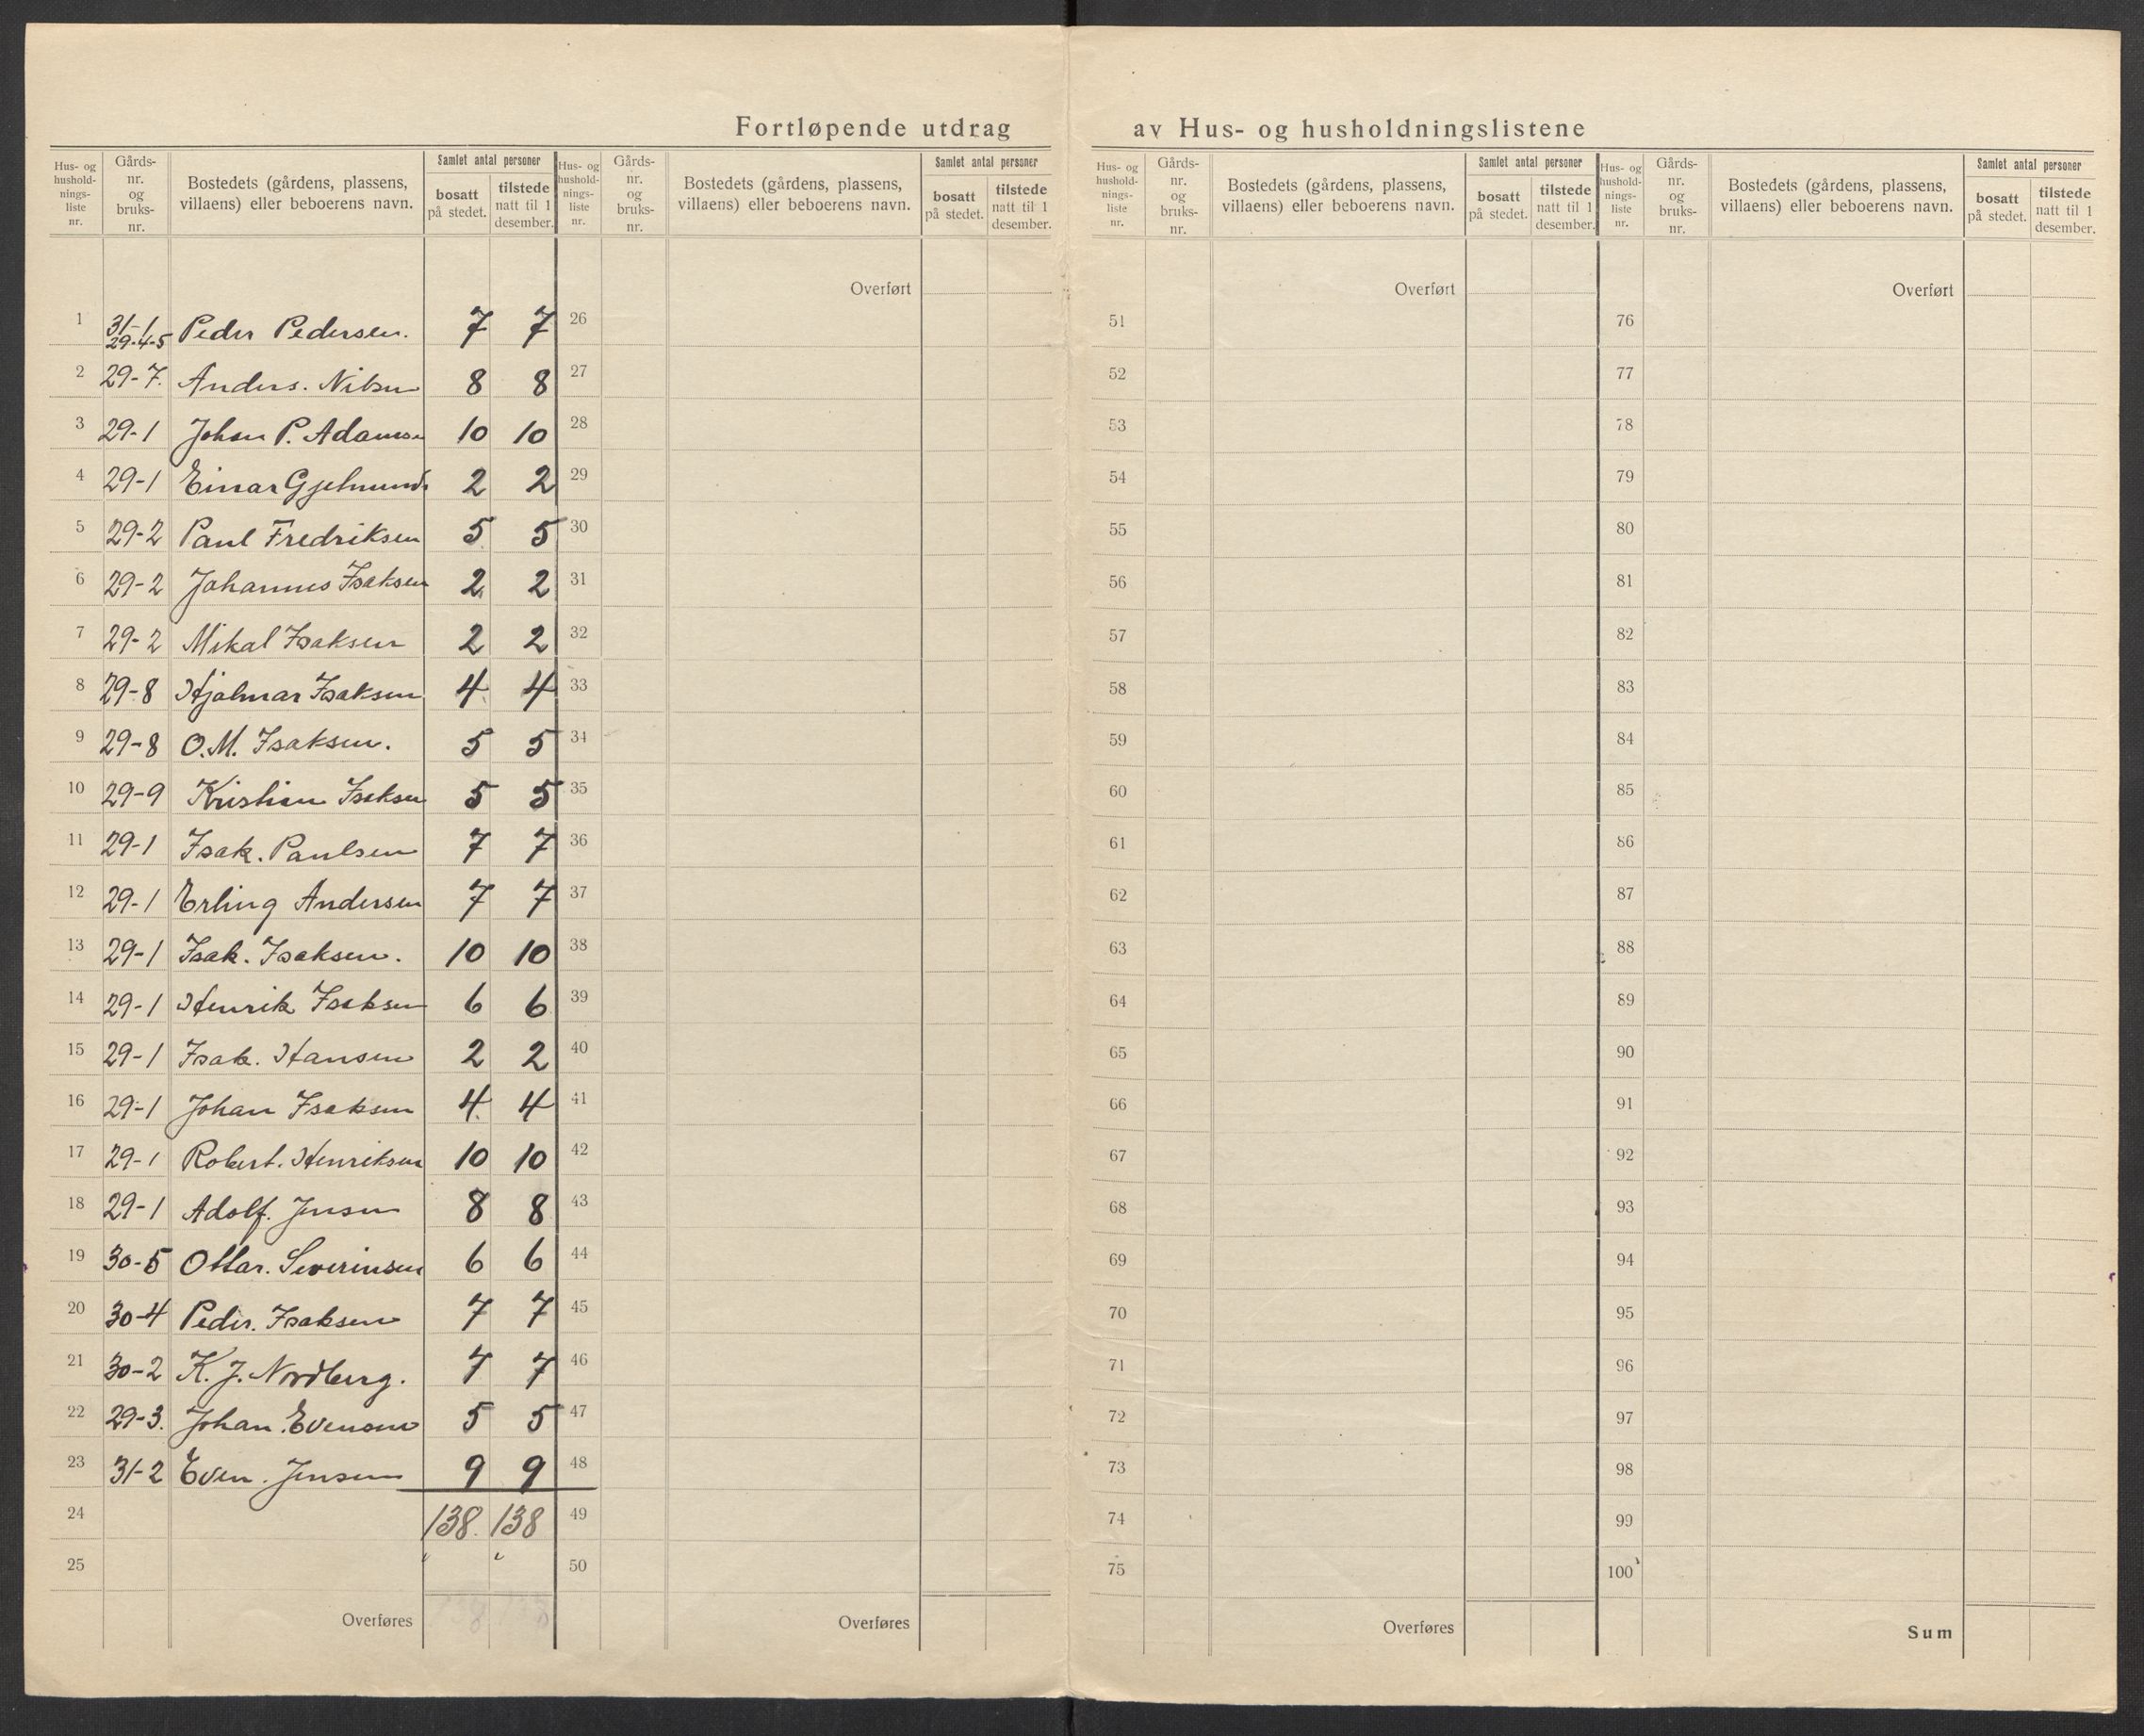 Fortløpende utdrag av Hus- og husholdningslistene
Hus- og hushold-nings-liste nr. | Gårds-nr. og bruks-nr. | Bostedets (gårdens, plassens, villaens) eller beboerens navn. | Samlet antal personer | bosatt på stedet. | tilstede natt til 1 desember.
Hus- og hushold-nings-liste nr. | Gårds-nr. og bruks-nr. | Bostedets (gårdens, plassens, villaens) eller beboerens navn. | Samlet antal personer | bosatt på stedet. | tilstede natt til 1 desember.
Hus- og hushold-nings-liste nr. | Gårds-nr. og bruks-nr. | Bostedets (gårdens, plassens, villaens) eller beboerens navn. | Samlet antal personer | bosatt på stedet. | tilstede natt til 1 desember.
Hus- og hushold-nings-liste nr. | Gårds-nr. og bruks-nr. | Bostedets (gårdens, plassens, villaens) eller beboerens navn. | Samlet antal personer | bosatt på stedet. | tilstede natt til 1 desember.
Overført Overført Overført
1 31-1 29-4-5 Peder Pedersen. 7 7 26 51 76
2 29-7. Anders. Nilsen 8 8 27 52 77
3 29-1 Johan P. Adamsen 10 10 28 53 78
4 29-1 Einar Gjelmunds 2 2 29 54 79
5 29-2 Paul Fredriksen 5 5 30 55 80
6 29-2 Johannes Isaksen 2 2 31 56 81
7 29-2 Mikal Isaksen 2 2 32 57 82
8 29-8 Hjalmar Isaksen 4 4 33 58 83
9 29-8 O.M. Isaksen. 5 5 34 59 84
10 29-9 Kristian Isaksen 5 5 35 60 85
11 29-1 Isak. Paulsen 7 7 36 61 86
12 29-1 Erling Andersen 7 7 37 62 87
13 29-1 Isak. Isaksen. 10 10 38 63 88
14 29-1 Henrik Isaksen 6 6 39 64 89
15 29-1 Isak. Hansen 2 2 40 65 90
16 29-1 Johan Isaksen 4 4 41 66 91
17 29-1 Robert. Henriksen 10 10 42 67 92
18 29-1 Adolf. Jensen 8 8 43 68 93
19 30-5 Ottar. Severinsen 6 6 44 69 94
20 30-4 Peder. Isaksen 7 7 45 70 95
21 30-2 K. J. Nordberg. 7 7 46 71 96
22 29-3. Johan. Evensen 5 5 47 72 97
23 31-2 Even. Jensen 9 9 48 73 98
24 138. 138 49 74 99
25 50 75 100
Overføres Overføres Overføres Sum